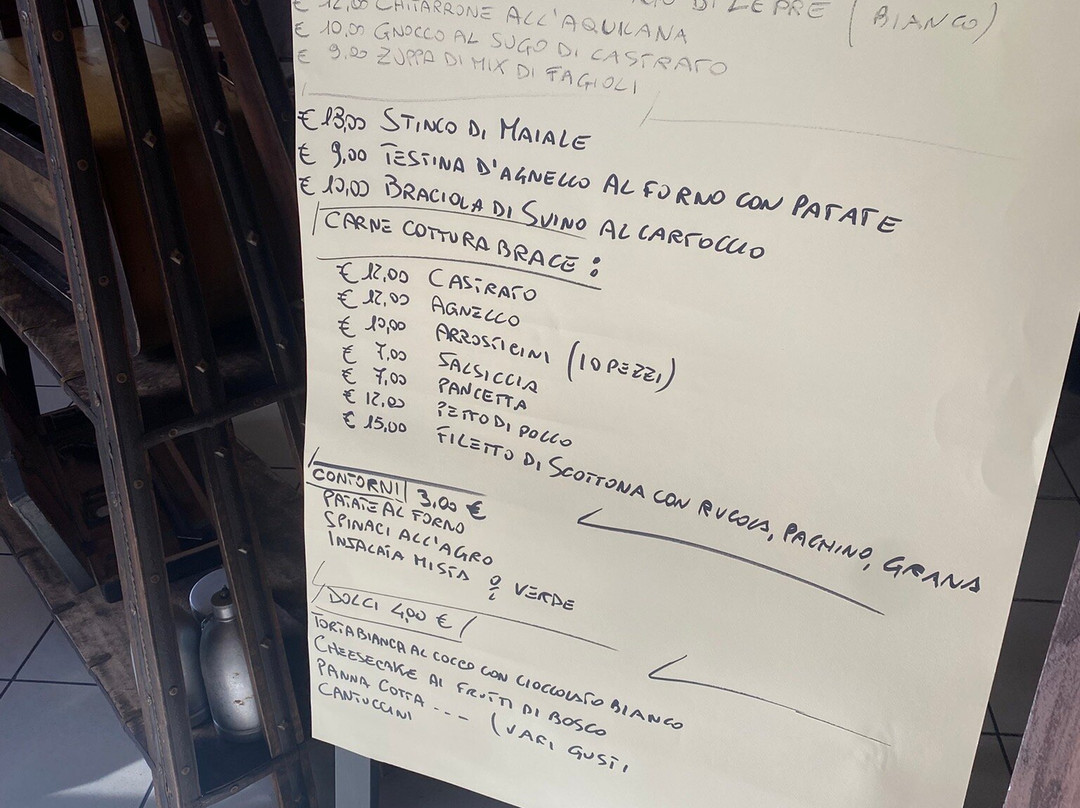 DI LEPRE (BIANCO)
€ 12,00 CHITARRONE ALL'AQUILANA
€ 10,00 GNOCCO AL SUGO DI CASTRATO
€ 9,00 ZUPPA DI MIX DI FAGIOLI
€ 13,00 STINCO DI MAIALE
€ 9,00 TESTINA D'AGNELLO AL FORNO CON PATATE
€ 10,00 BRACIOLA DI SUINO AL CARTOCCIO
CARNE COTTURA BRACE:
€ 12,00 CASTRATO
€ 12,00 AGNELLO
€ 10,00 ARROSTICINI (10 PEZZI)
€ 7,00 SALSICCIA
€ 7,00 PANCETTA
€ 12,00 PETTO DI POLLO
€ 15,00 FILETTO DI SCOTTONA CON RUCOLA, PACHINO, GRANA
CONTORNI 3,00 €
PATATE AL FORNO
SPINACI ALL'AGRO
INSALATA MISTA O VERDE
DOLCI 4,00 €
TORTA BIANCA AL COCCO CON CIOCCOLATO BIANCO
CHEESECAKE AI FRUTTI DI BOSCO
PANNA COTTA --- (VARI GUSTI
CANTUCCINI